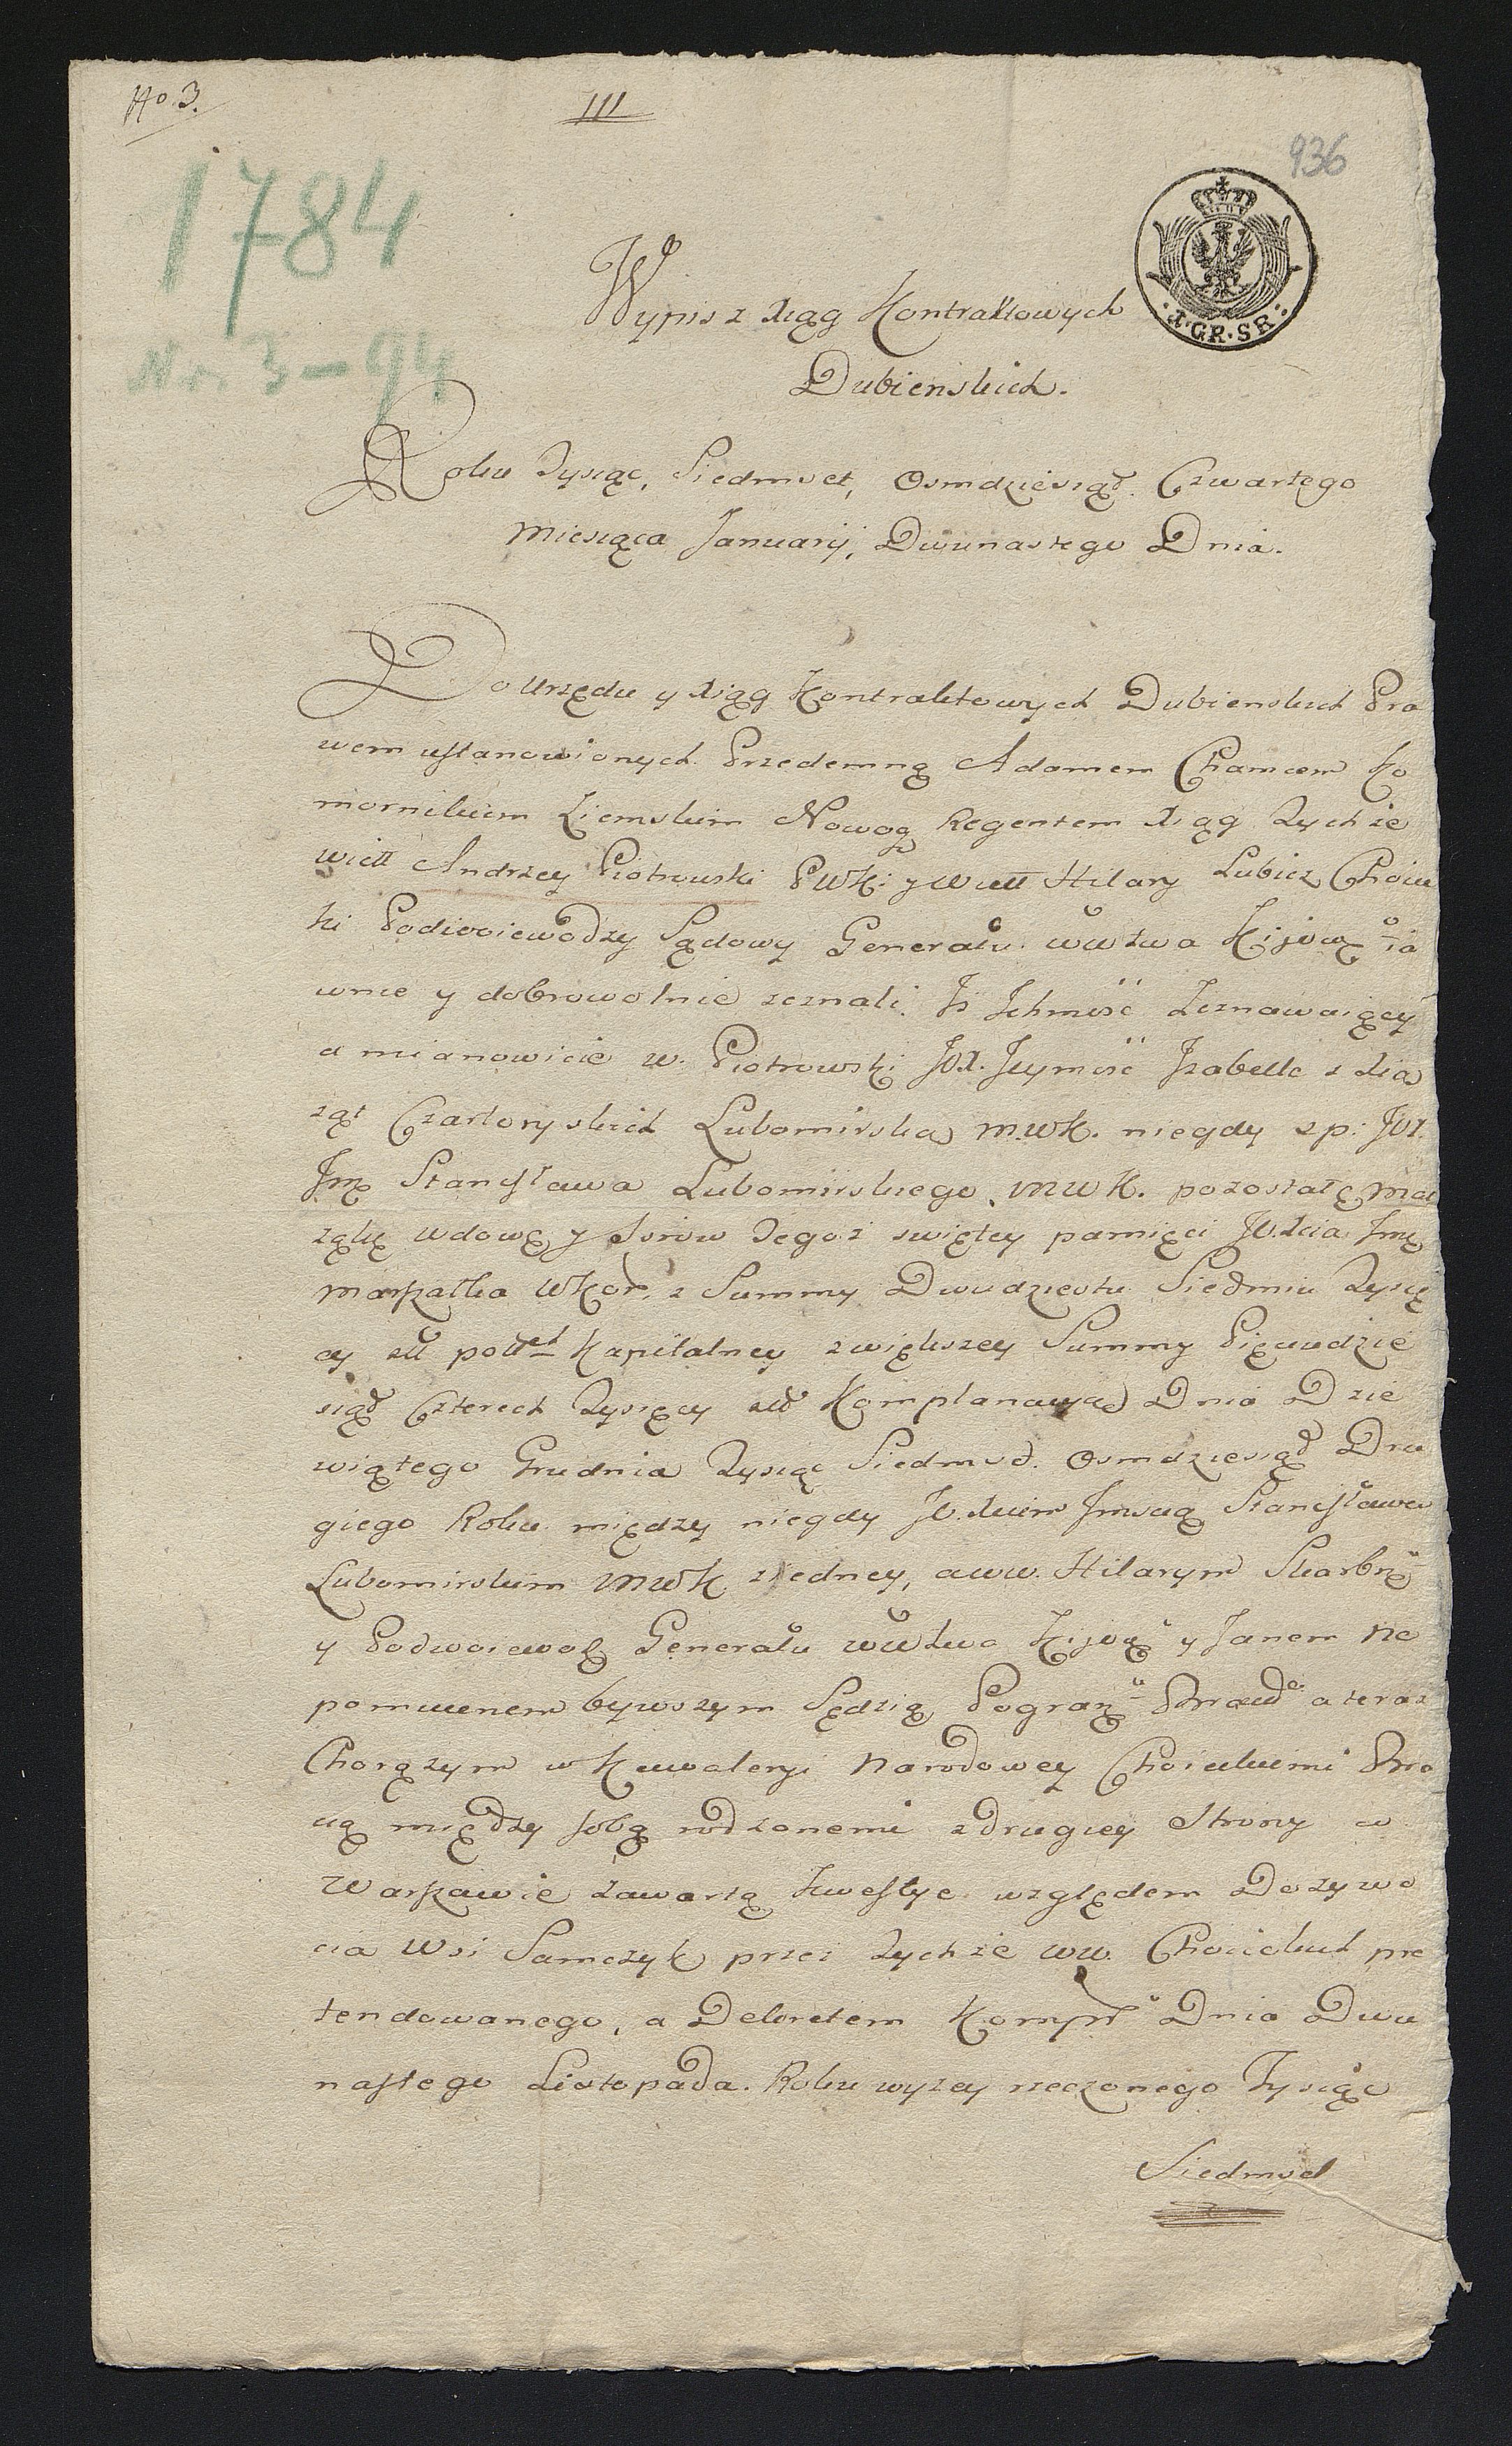 No 3.
III
936
1784
Nr. 3-94
1. GR. SR.
Wypis z Xiąg Kontraktowych
Dubienskich.
Roku Tysiąc, Siedmset, Osmdziesiąt Czwartego
Miesiąca Januarij, Dwunastego Dnia.
Do Urzędu y Xiąg Kontraktowych Dubienskich Pra
wem ustanowionych Przedemną Adamem Chamcem Ko
mornikiem Ziemskim Nowog Regentem Xiąg Tychże
Andrzey Piotrowski PWKi y Hilary Lubicz Choiec
ki Podwoiewodzy Sądowy Generału Wwtwa Kijow ia
wnie y dobrowolnie zeznali. Iż Ichmość Zeznawaiący
a mianowicie W. Piotrowski JOX. Jeymość Izabelle z Xia
żąt Czartoryskich Lubomirska M.W.K. niegdy s p: JOX.
Jmę Stanisława Lubomirskiego MWK. pozostałę Mał
żąkę wdowę y Synów Tegoż swiętey pamięci JO. Xcia Jmę
Marszałka WKor, z Summy Dwudziestu Siedmiu Tysię
cy zł pol Kapitalney z większey Summy Pięcudzie
siąt Czterech Tysięcy zł Komplanacyą Dnia Dzie
wiątego Grudnia Tysiąc Siedmset Osmdziesiąt Dru
giego Roku między niegdy JO. Xciem Jmscią Stanisławem
Lubomirskim MWK z iedney, a WW. Hilarym Skarbn
y Podwoiewod Generału Wwtwa Kijow y Janem Ne
pomucenem bywszym Sędzią Pogran Bracław a teraz
Chorążym w Kawaleryi Narodowey Choieckiemi Bra
cią między sobą rodzonemi z drugiey Strony w
Warszawie zawartą kwestye względem Dożywo
cia Wsi Samczyk przez tychże WW. Choieckich pre
tendowanego, a Dekretem Kompr Dnia Dwu
nastego Listopada. Roku wyżey rzeczonego Tysiąc
Siedmset